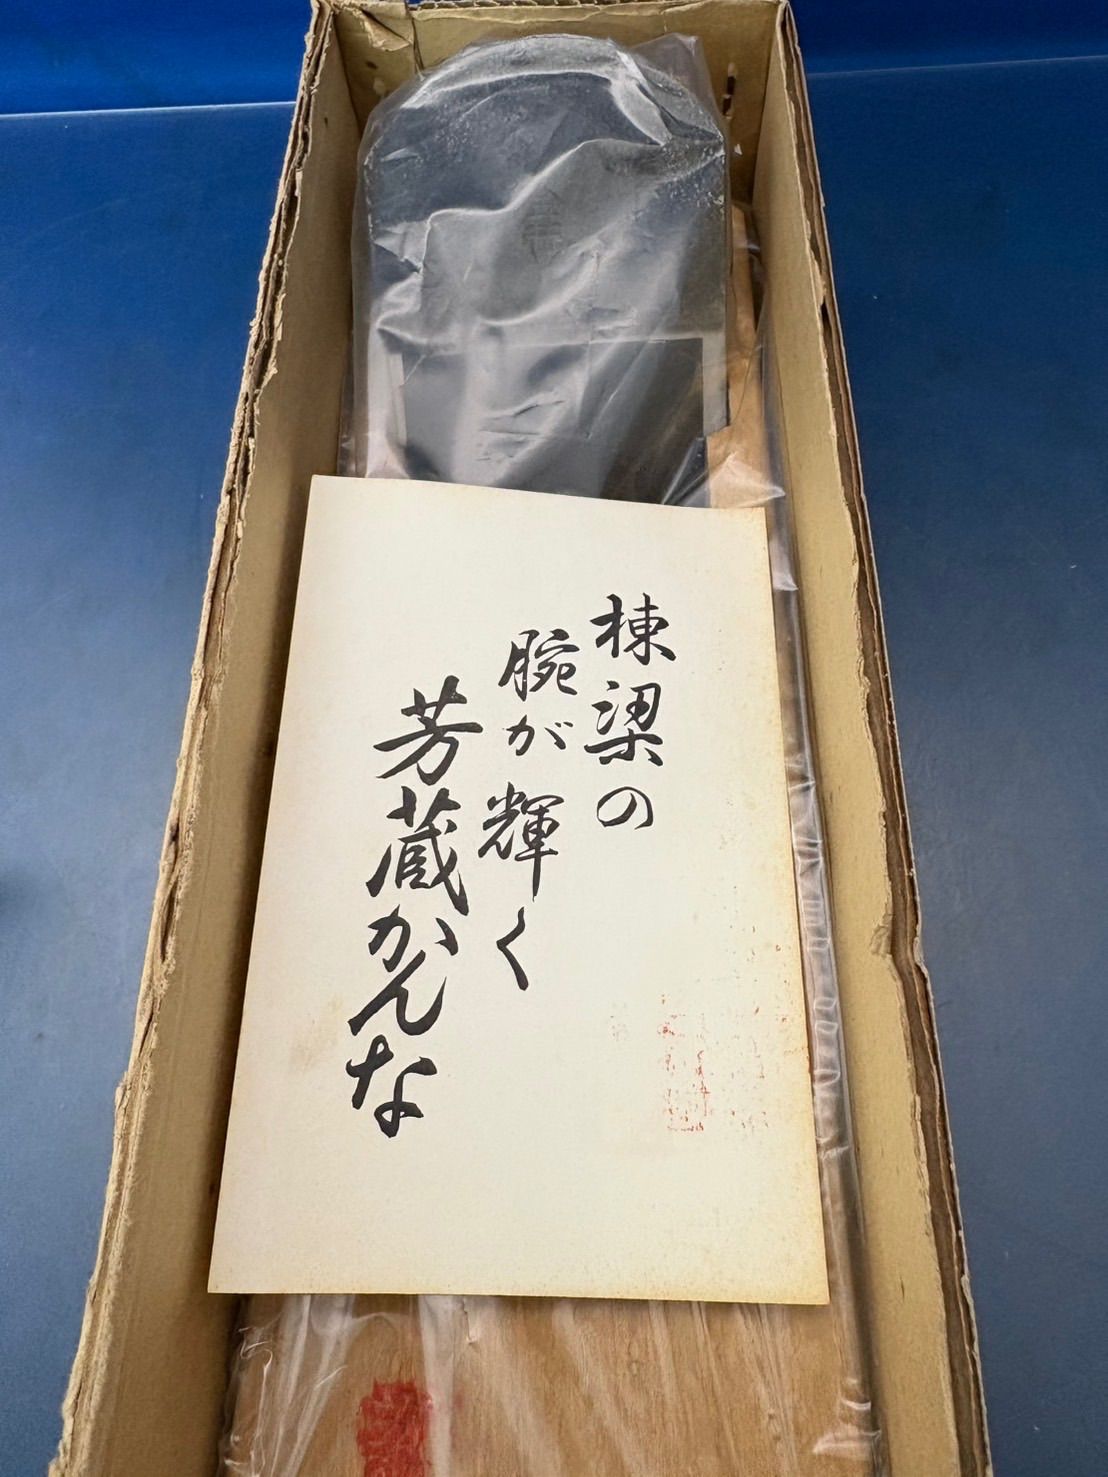 棟梁の
腕が輝く
芳蔵かんな